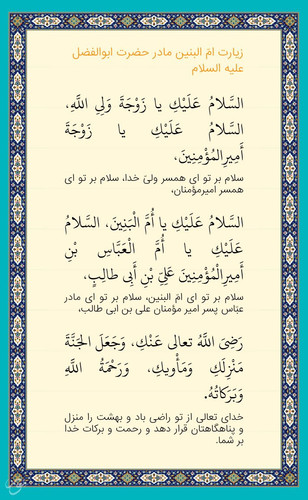 زیارت امّ البنین مادر حضرت ابوالفضل
علیه السلام
السَّلامُ عَلَيْكِ يا زَوْجَةَ وَلِيِّ اللَّهِ،
السَّلامُ عَلَيْكِ يا زَوْجَةَ
أَمِيرِالمُؤْمِنِينَ،
سلام بر تو ای همسر ولیّ خدا، سلام بر تو ای
همسر امیرمؤمنان،
السَّلامُ عَلَيْكِ يا أُمَّ الْبَنِينَ، السَّلامُ
عَلَيْكِ يا أُمَّ الْعَبَّاسِ بْنِ
أَمِيرِالْمُؤْمِنِينَ عَلِيِّ بْنِ أَبِي طالِبٍ،
سلام بر تو ای امّ البنین، سلام بر تو ای مادر
عبّاس پسر امیر مؤمنان علی بن ابی طالب،
رَضِيَ اللَّهُ تعالى عَنْكِ، وَجَعَلَ الجَنَّةَ
مَنْزِلَكِ وَمَأْويكِ، وَرَحْمَةُ اللَّهِ
وَبَرَكاتُهُ.
خدای تعالی از تو راضی باد و بهشت را منزل
و پناهگاهتان قرار دهد و رحمت و برکات خدا
بر شما.